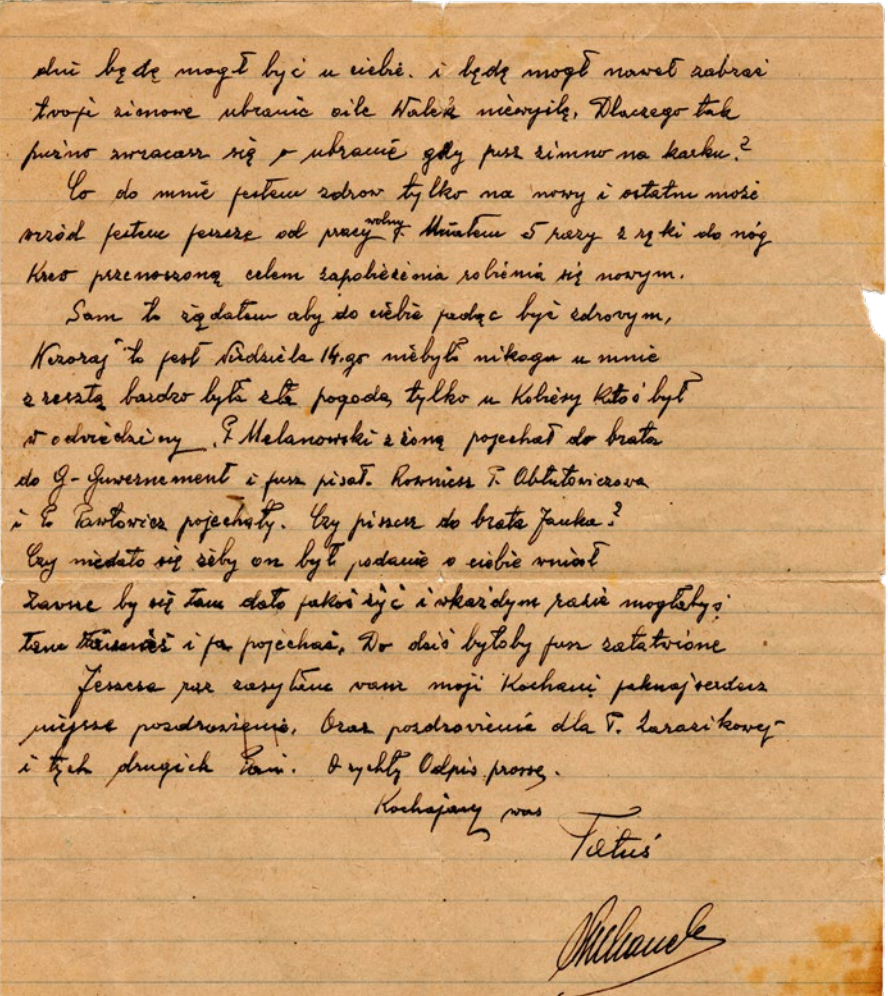 dni będę mogł być u ciebie. i będę mogł nawet zabrać
twoji zimowe ubranie oile Walek niewyśle, Dlaczego tak
puźno zwracasz się o ubranie gdy jusz zimno na karku?
Co do mnie jestem zdrow tylko na nowy i ostatni może
wrzód jestem jeszcze od pracy wolny. Miałem 5 razy z ręki do nóg
Krew przenoszoną celem zapobieżenia robienia się nowym.
Sam to żądałem aby do ciebie jadąc być zdrowym,
Wczoraj to jest Niedziela 14.go niebyło nikogo u mnie
zresztą bardzo była zła pogoda, tylko u Kobiery Ktoś był
w odwiedziny. P. Melanowski z żoną pojechał do brata
do G-Guwernement i jusz pisał. Rowniesz P. Obłutowiczowa
i P. Pawłowicz pojechały. Czy piszesz do brata Janka?
Czy niedało się żeby on był podanie o ciebie wniósł
Zawsze by się tam dało jakoś żyć i wkażdym razie mogłabyś
tam i ja pojechać, Do dziś byłoby jusz załatwione
Jeszcza raz zasyłam wam moji Kochani jaknajserdecz
niejsze pozdrowienie, Oraz pozdrowienie dla P. Zarazikowej
i tych drugich Pań. O rychły Odpis prosszę.
Kochający was
Tatuś